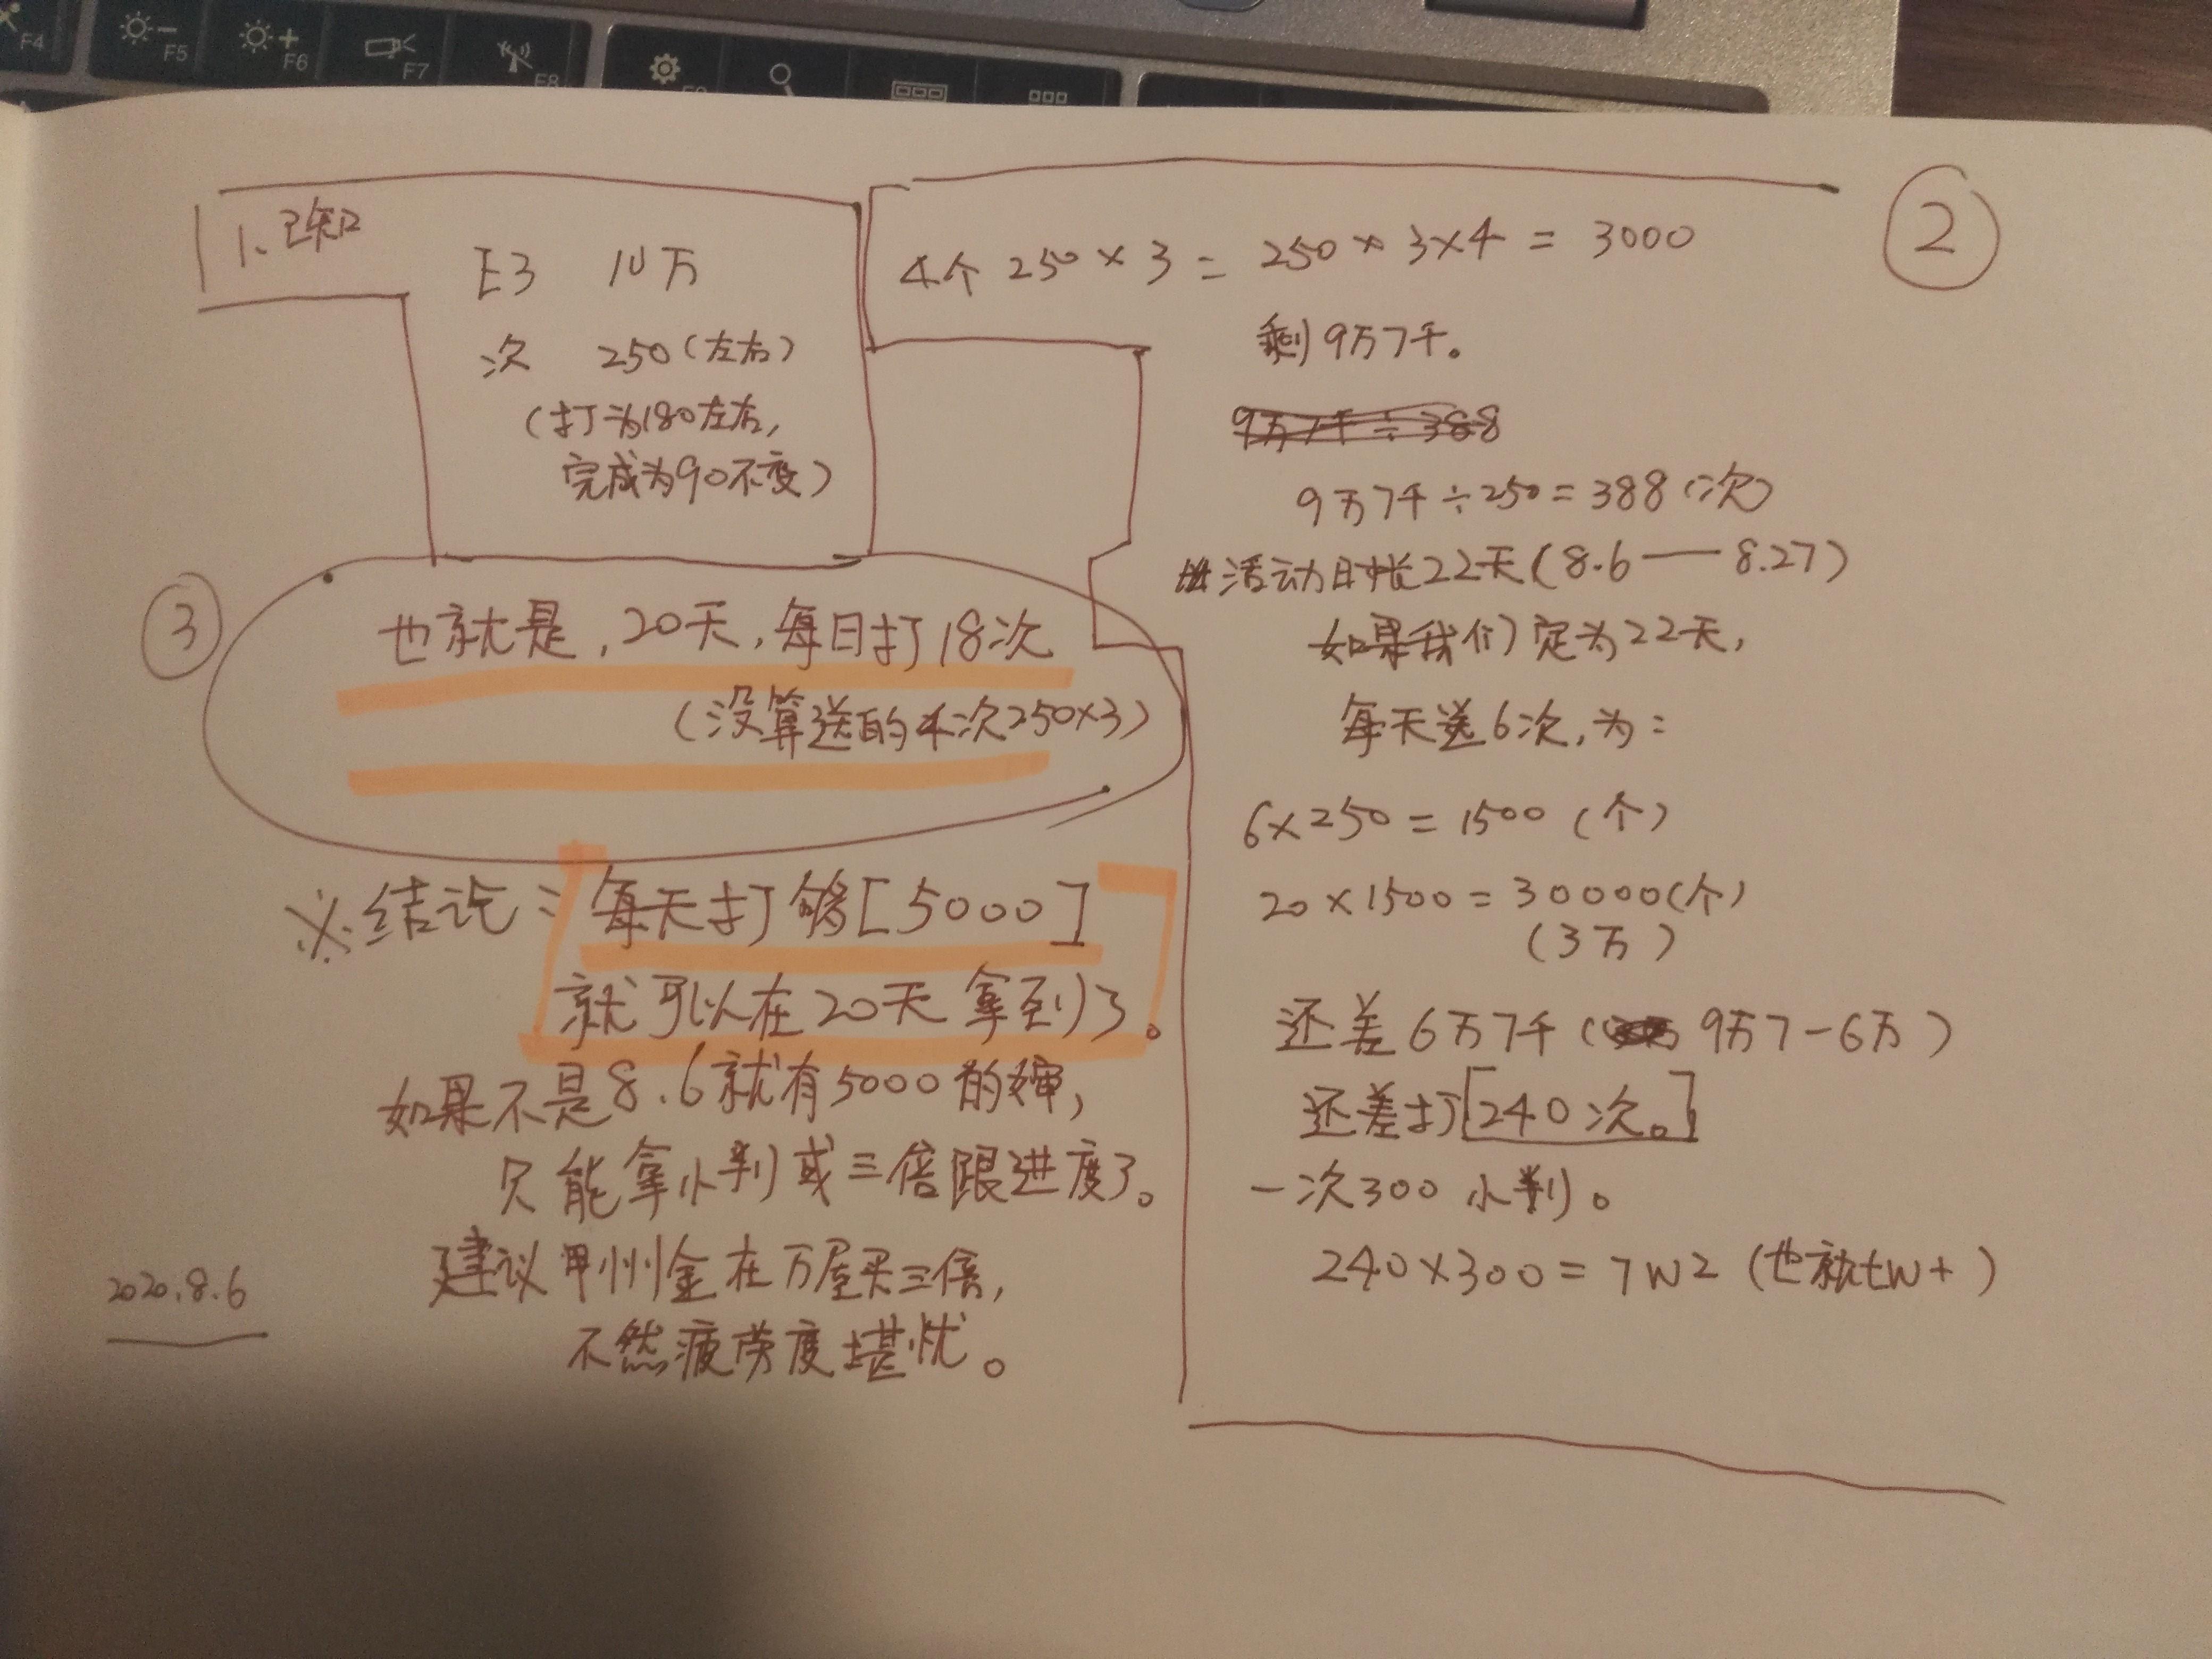 F4
F5
F6
F7
F8
1、已知
E3 10万
次 250(左右)
(打为180左右,
完成为90不变)
②
4个250×3=250×3×4=3000
剩9万7千。
9万7千÷388
9万7千÷250=388(次)
活动时长22天(8.6——8.27)
如果我们定为22天,
每天送6次,为:
6×250=1500(个)
20×1500=30000(个)
(3万)
还差6万7千(9万7-6万)
还差打[240次。]
一次300小判。
240×300=7W2(也就7W+)
③
也就是,20天,每日打18次
(没算送的4次250×3)
※结论:每天打够[5000]
就可以在20天拿到了。
如果不是8.6就有5000的婶,
只能拿小判或三倍跟进度了。
建议甲州金在万屋买三倍,
不然疲劳度堪忧。
2020.8.6